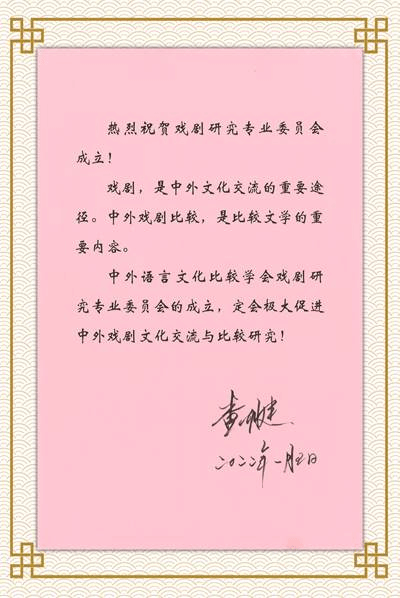 热烈祝贺戏剧研究专业委员会
成立！
戏剧，是中外文化交流的重要途
径。中外戏剧比较，是比较文学的重
要内容。
中外语言文化比较学会戏剧研
究专业委员会的成立，定会极大促进
中外戏剧文化交流与比较研究！
查明建
二〇二二年一月五日